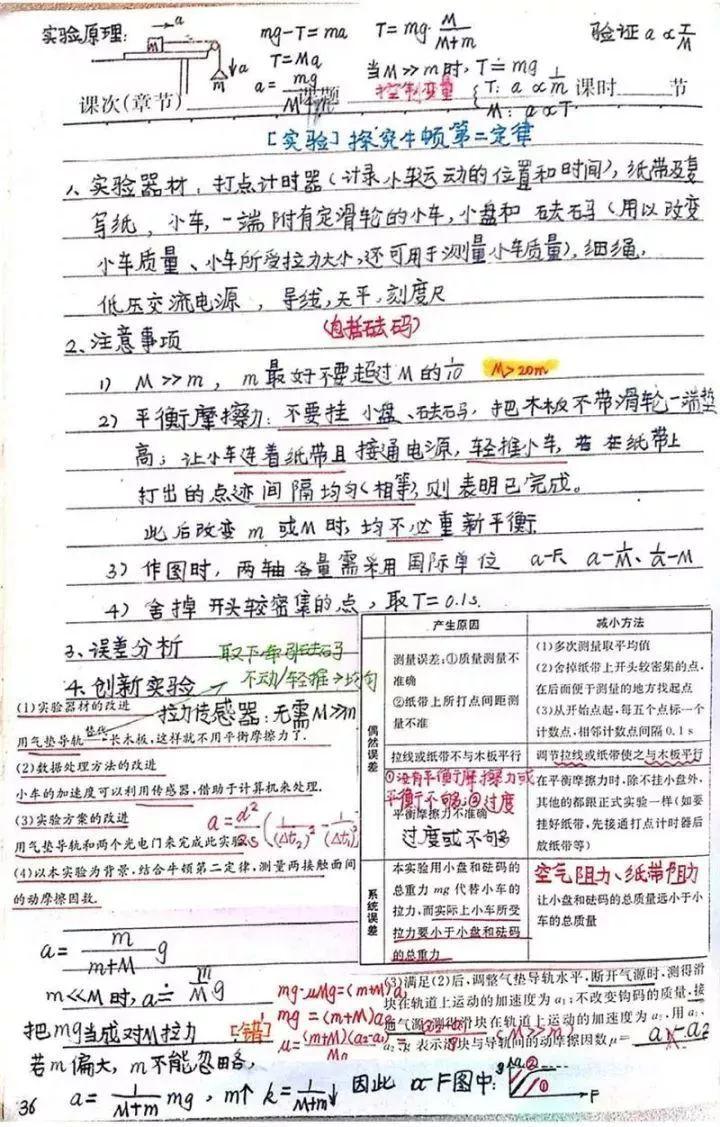 实验原理:
mg-T=ma  T=mg·M/(M+m)  验证a∝F/M
T=Ma  当M≫m时,T≐mg
a=mg/(M+m)  控制变量 { T: a∝1/m
M: a∝T
课次(章节)  课题  课时  节
[实验]探究牛顿第二定律
1、实验器材:打点计时器(计录小车运动的位置和时间),纸带及复
写纸,小车,一端附有定滑轮的小车,小盘和砝码(用以改变
小车质量、小车所受拉力大小,还可用于测量小车质量),细绳,
低压交流电源,导线,天平,刻度尺
2、注意事项  (包括砝码)
1) M≫m,m最好不要超过M的1/10  M>20m
2) 平衡摩擦力:不要挂小盘、砝码,把木板不带滑轮一端垫
高;让小车连着纸带且接通电源,轻推小车,若在纸带上
打出的点迹间隔均匀(相等),则表明已完成。
此后改变m或M时,均不必重新平衡
3) 作图时,两轴各量需采用国际单位 a-F、a-1/M、1/a-M
4) 舍掉开头较密集的点,取T=0.1s.
3、误差分析
不动/轻推→均匀
4、创新实验
拉力传感器:无需M≫m
(1)实验器材的改进
用气垫导轨替代长木板,这样就不用平衡摩擦力了.
(2)数据处理方法的改进
小车的加速度可以利用传感器,借助于计算机来处理.
(3)实验方案的改进
用气垫导轨和两个光电门来完成此实验.
(4)以本实验为背景,结合牛顿第二定律,测量两接触面间
的动摩擦因数.
产生原因  减小方法
偶然误差
测量误差:①质量测量不
准确
②纸带上所打点间距测
量不准
(1)多次测量取平均值
(2)舍掉纸带上开头较密集的点,
在后面便于测量的地方找起点
(3)从开始点起,每五个点标一个
计数点,相邻计数点间隔0.1 s
拉线或纸带不与木板平行
调节拉线或纸带使之与木板平行
①没有平衡摩擦力或
平衡不够;②过度
平衡摩擦力不准确
过度或不句多
在平衡摩擦力时,除不挂小盘外,
其他的都跟正式实验一样(如要
挂好纸带,先接通打点计时器后
放纸带等)
系统误差
本实验用小盘和砝码的
总重力 mg 代替小车的
拉力,而实际上小车所受
拉力要小于小盘和砝码
的总重力
空气阻力、纸带阻力
让小盘和砝码的总质量远小于小
车的总质量
a=m/(m+M) g
m≪M时,a≐m/M g
把mg当成对M拉力 [错]
若m偏大,m不能忽略,
a=1/(M+m) mg,m↑ k=1/(M+m)↓ 因此a-F图中:
mg-μMg=(m+M)a₁
mg=(m+M)a₂
(M≫m)
(3)满足(2)后,调整气垫导轨水平,断开气源时,测得滑
块在轨道上运动的加速度为a₁;不改变钩码的质量,接
通气源,测得滑块在轨道上运动的加速度为a₂,用a₁、
a₂、g表示滑块与导轨间的动摩擦因数μ=
② ① F
36